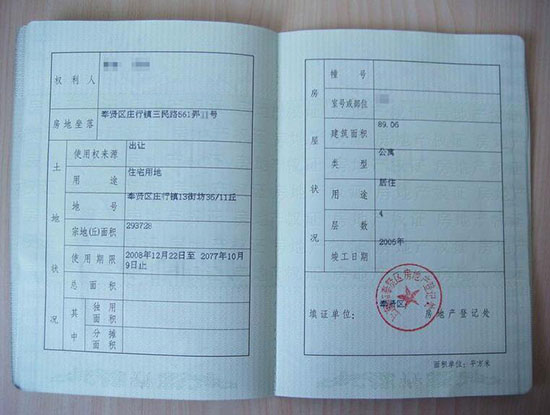 权利人
房地坐落 奉贤区庄行镇三民路661弄11号
土地状况
使用权来源 出让
用途 住宅用地
地号 奉贤区庄行镇13街坊36/11丘
宗地(丘)面积 293728
使用期限 2008年12月22日至 2077年10月
9日止
总面积
其中
独用
面积
分摊
面积
房屋状况
幢号
室号或部位
建筑面积 89.06
类型 公寓
用途 居住
层数 4
竣工日期 2006年
填证单位: 奉贤区 房地产登记处
面积单位: 平方米